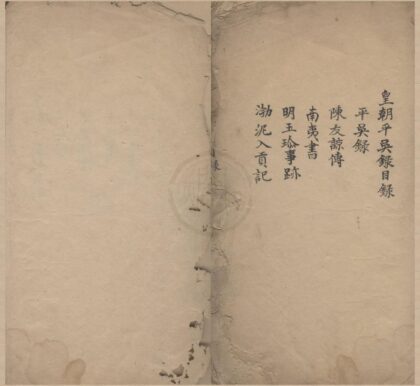 皇朝平吳錄目錄
平吳錄
陳友諒傳
南夷書
明玉珍事跡
渤泥入貢記